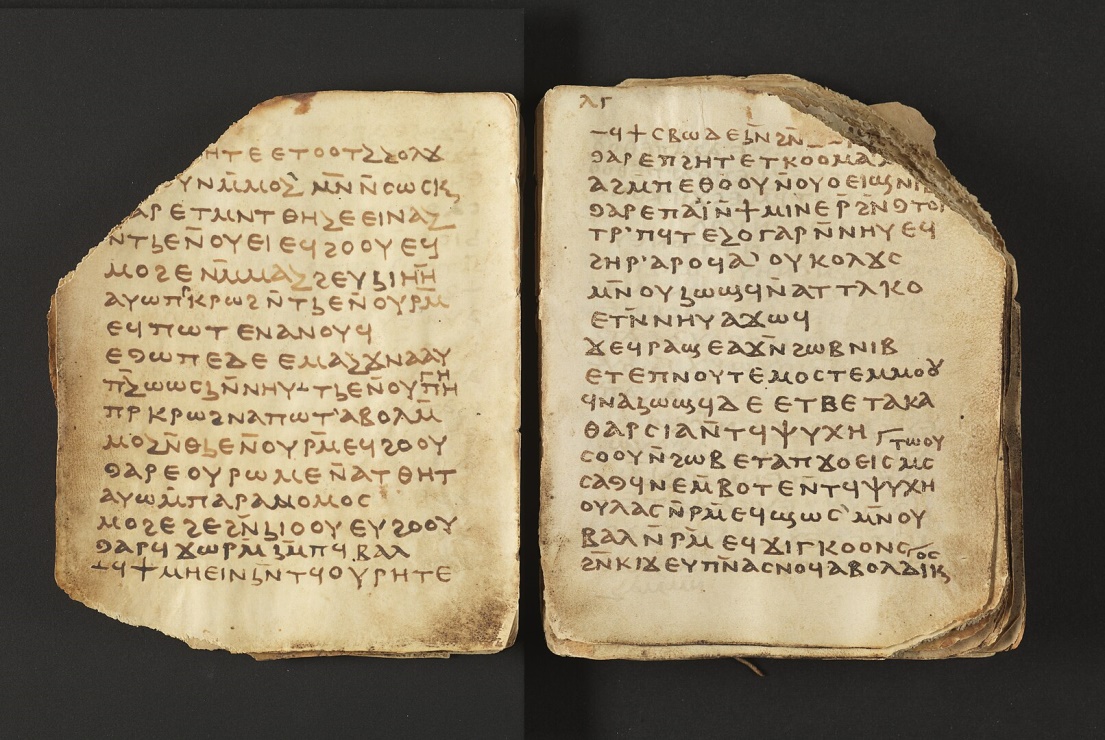 ⲏⲧⲉ ⲉⲧⲟⲟⲧⲹ ϩⲟⲗϫ
ⲟⲩⲛⲙ̄ⲙⲟⲹ ⲙⲛ̄ⲛ̄ⲥⲱⲥⲕ
ⲁⲣⲉⲧⲙⲛⲧ ⲑⲏⲹⲉ ⲉⲓⲛⲁⲹ
ⲛⲧⳉⲉⲛ̄ⲟⲩⲉⲓ ⲉϥϩⲟⲟⲩ ⲉϥ
ⲙⲟϩⲉ ⲛⲙ̄ⲙⲁⲹ
ⲁⲩⲱⲡ'ⲕⲣⲱϩ ⲛ̄ⲧⳉⲉⲛ̄ⲟⲩⲣⲙ̄
ⲉϥⲡⲱⲧ ⲉⲛⲁⲛⲟⲩϥ
ⲉⳋⲱⲡⲉ ⲇⲉ ⲉⲙⲁⲹϫⲛⲁⲁⲩ
ⲡⲣⲕⲣⲱϩⲛⲁⲡⲱⲧ'ⲁⲃⲟⲗⲙ̄
ⲙⲟⲹⲛ̄ⲑⳉⲉⲛ̄ⲟⲩⲣⲙ̄ⲉϥϩⲟⲟⲩ
ⳋⲁⲣⲉ ⲟⲩⲣⲱⲙⲉ ⲛ̄ⲁⲧ ⲑⲏⲧ
ⲁⲩⲱⲙ̄ⲡⲁⲣⲁⲛⲟⲙⲟⲥ
ⲙⲟϩⲉ ϩⲉϩⲛ̄ⳉⲓⲟⲟⲩ ⲉⲩϩⲟⲟⲩ
ⳋⲁⲣϥ ϫⲱⲣⲙ̄ ⳉⲙ̄ⲡϥⲃⲁⲗ
ⲳϥϯⲙⲏⲉⲓⲛⳉⲛ̄ⲧϥⲟⲩⲣⲏⲧⲉ
ⲗⲅ
ⲻϥϯⲥⲃⲱ ⲇⲉⳉⲛ̄ϩⲛ̄
ⳋⲁⲣⲉⲡϩⲏⲧ'ⲉⲧⲕⲟⲟⲙⲁ
ⲁϩⲙ̄ⲡⲉⲑⲟⲟⲩ ⲛ̄ⲟⲩⲟⲉⲓϣ ⲛⲓⲃ
ⳋⲁⲣⲉⲡⲁⲓ̈ ⲛ̄ϯⲙⲓⲛⲉ ⲣ̄ϩⲛ ⳋⲧⲟⲣ
ⲧⲣ'ⲡϥⲧⲉⲹⲟ ⲅⲁⲣ ⲛ̄ⲛⲏⲩ ⲉϥ
ϩⲏⲣ'ⲁⲣⲟϥⲁ' ⲟⲩⲕⲟⲗϫⲥ
ⲙⲛ̄ ⲟⲩⳉⲱϣϥⲛ̄ⲁⲧ ⲧⲁⲕⲟ
ⲉⲧⲛ̄ⲛⲏⲩ ⲁϫⲱϥ
ϫⲉϥⲣⲁϣ ⲉⲁϫⲛ̄ ϩⲱⲃ ⲛⲓⲃ
ⲉⲧⲉⲡⲛⲟⲩⲧⲉ ⲙⲟⲥⲧⲉⲙⲙⲟⲩ
ϥⲛⲁⳉⲱϣϥ ⲇⲉ ⲉⲧⲃⲉ ⲧⲁⲕⲁ
ⲑⲁⲣⲥⲓⲁ ⲛ̄ⲧϥⲯⲩⲭⲏ
ⲧⲱⲟⲩ
ⲥⲟⲟⲩⲛ̄ϩⲱⲃ ⲉⲧⲁⲡϫⲟⲉⲓⲥ ⲙⲥ
ⲥⲁⳋϥ ⲛⲉⲙ̄ⲃⲟⲧ ⲉⲛ̄ⲧϥⲯⲩⲭⲏ
ⲟⲩⲗⲁⲥ ⲛ̄ⲣⲙ̄ ⲉϥϣⲱⲥ' ⲙⲛ̄ ⲟⲩ
ⲃⲁⲗ ⲛ̄ⲣⲙ̄ ⲉϥϫⲓⲅⲕⲟⲟⲛⲥ
ϩⲛ̄ⲕⲓϫ ⲉⲩⲡⲛ̄ⲁⲥⲛⲟϥ ⲁⲃⲟⲗ